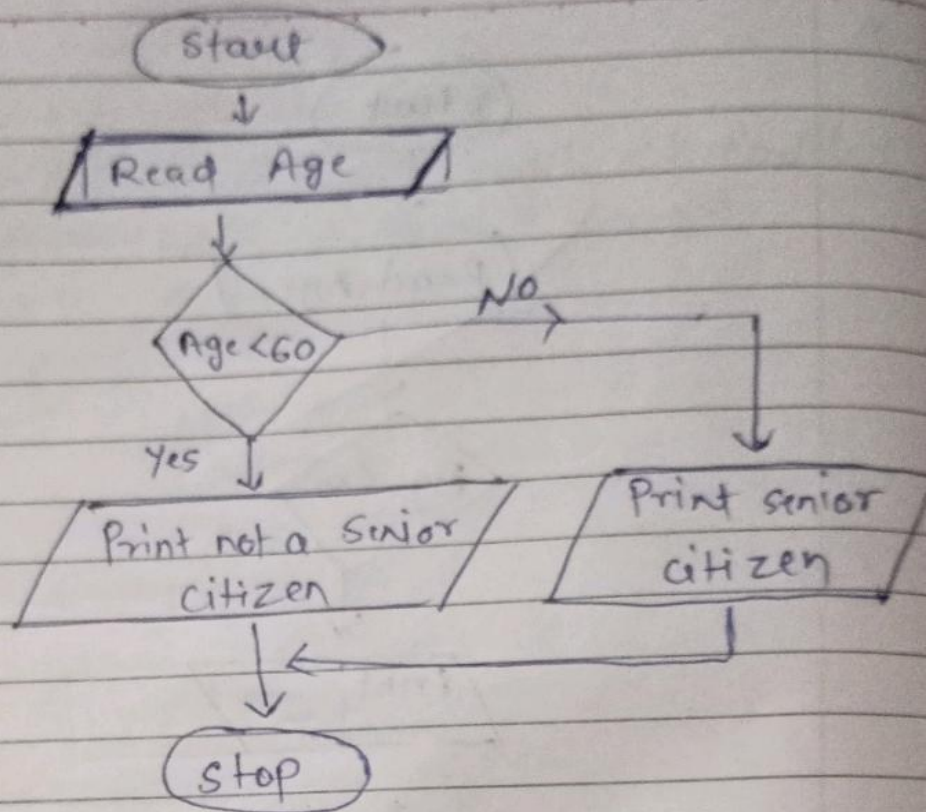 Start
Read Age
Age <60
NO
Yes
Print not a Senior
citizen
Print senior
citizen
Stop